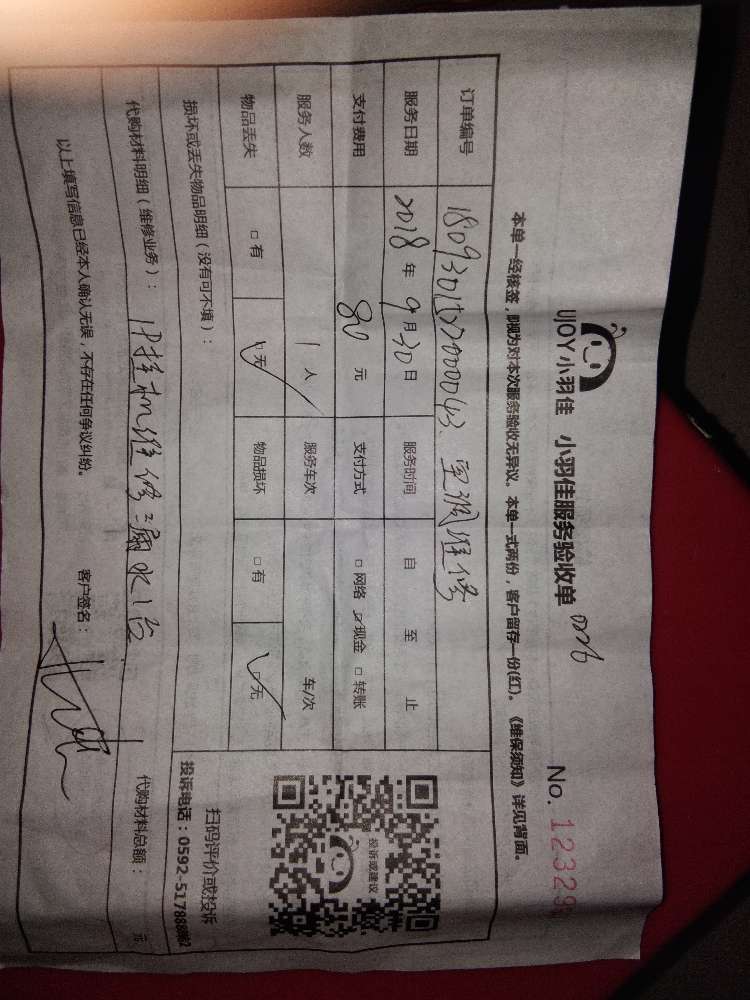 UJOY小羽佳 小羽佳服务验收单 0026
No. 12329
本单一经核签，即视为对本次服务验收无异议。本单一式两份，客户留存一份(红)。《维保须知》详见背面。
订单编号 空调维修
服务日期 2018 年 9 月 30 日 服务时间 自 至 止
支付费用 80 元 支付方式 □ 网络 ☑ 现金 □ 转账
服务人数 1 人 服务车次 车/次
物品丢失 □ 有 ☑ 无 物品损坏 □ 有 ☑ 无
损坏或丢失物品明细（没有可不填）：
投诉或建议
扫码评价或投诉
投诉电话：0592-5178888
代购材料明细（维修业务）：1P挂机维修：漏水1台 代购材料总额： 元
以上填写信息已经本人确认无误，不存在任何争议纠纷。 客户签名：